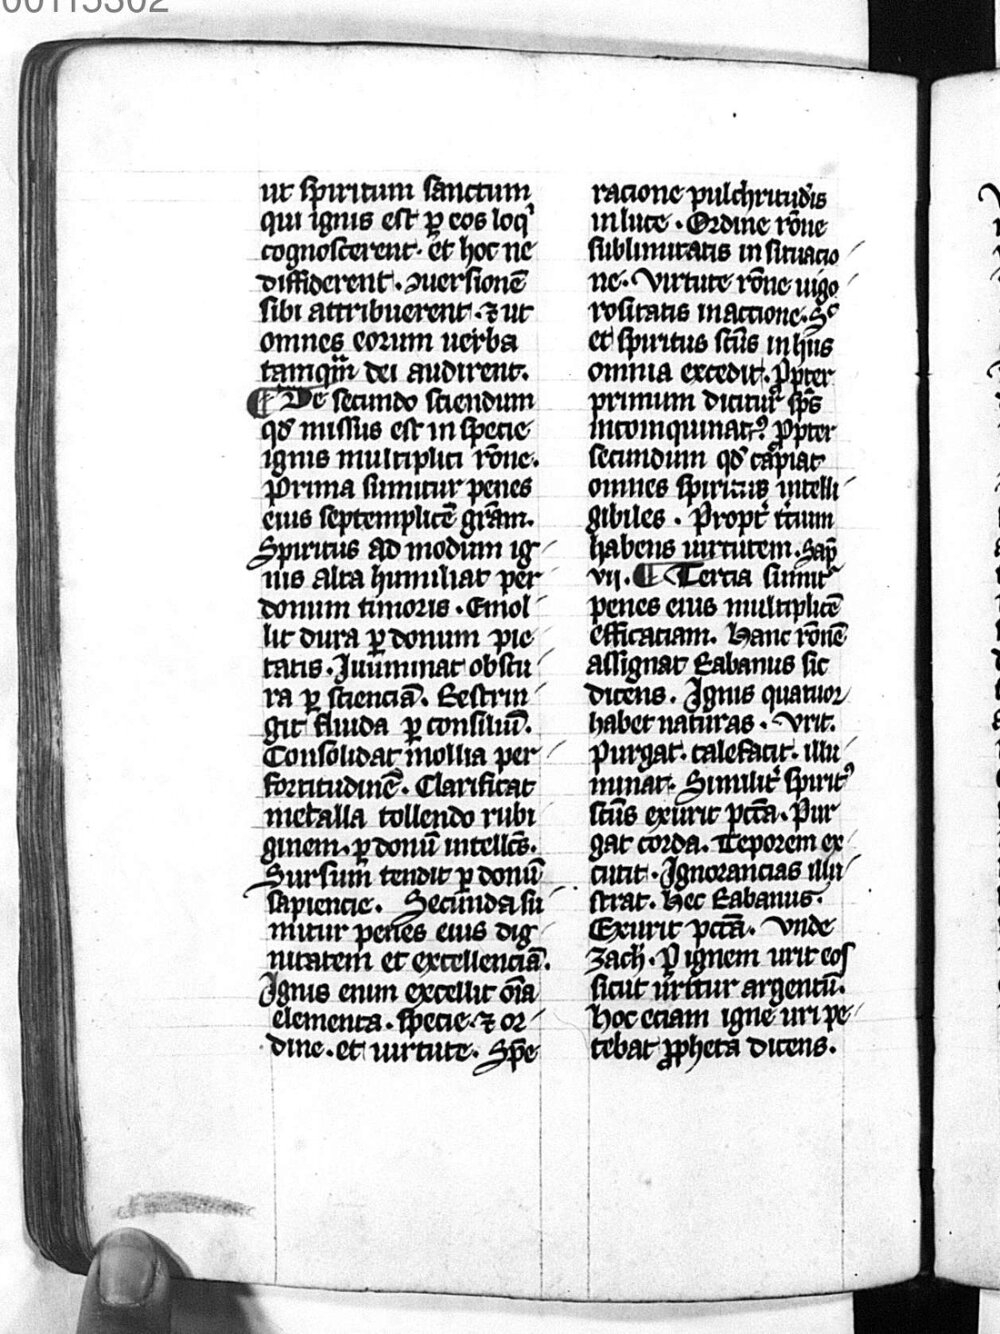 00115302
ut spiritum sanctum
qui ignis est ꝑ eos loqͥ
cognoscerent· et hoc ne
diffiderent · ꝯuersionē
sibi attribuerent · ⁊ ut
omnes eorum uerba
tamqͣm dei audirent.
¶ De secundo sciendum
qd̕ missus est in specie
ignis multiplici rōne.
Prima sumitur penes
eius septemplicē gr̄am.
Spiritus ad modum ig
nis alta humiliat per
donum timoris · Emol
lit dura ꝑ donum pie
tatis · Illuminat obscu
ra ꝑ scienciā. Restrin
git fluida ꝑ consiliū.
Consolidat mollia per
fortitudinē · Clarificat
metalla tollendo rubi
ginem · ꝑ donū intellcs̄.
Sursum tendit ꝑ donū
sapiencie. Secunda su
mitur penes eius dig
nitatem et excellenciā.
Ignis enim excellit oīa
elementa · specie · ⁊ or
dine · et uirtute. Spē
racione pulchritudīs
in luce · Ordine rōne
sublimitatis in situacio
ne · Virtute rōne uigo
rositatis in accione · Sꝫ
et spiritus scūs in hiis
omnia excedit. Ꝓpter
primum dicitur sp̄s
incoinquinatꝰ. Ꝓpter
secundum qd̕ capiat
omnes spiritus intelli
gibiles · Propt̕ t̕cium
habens uirtutem. Sap̄
vii. ¶ Tercia sumit᷑
penes eius multiplicē
efficaciam. Hanc rōnē
assignat Rabanus sic
dicens. Ignis quatuor
habet naturas · Vrit.
purgat. calefacit. illu
minat. Similit̕ spiritꝰ
scūs exurit pctā. Pur
gat corda. Teporem ex
cutit · Ignorancias illu
strat. Hec Rabanus.
Exurit pctā. Vnde
Zach̕. Ꝑ ignem urit eos
sicut uritur argentū.
Hoc eciam igne uri pe
tebat ꝓpheta dicens.